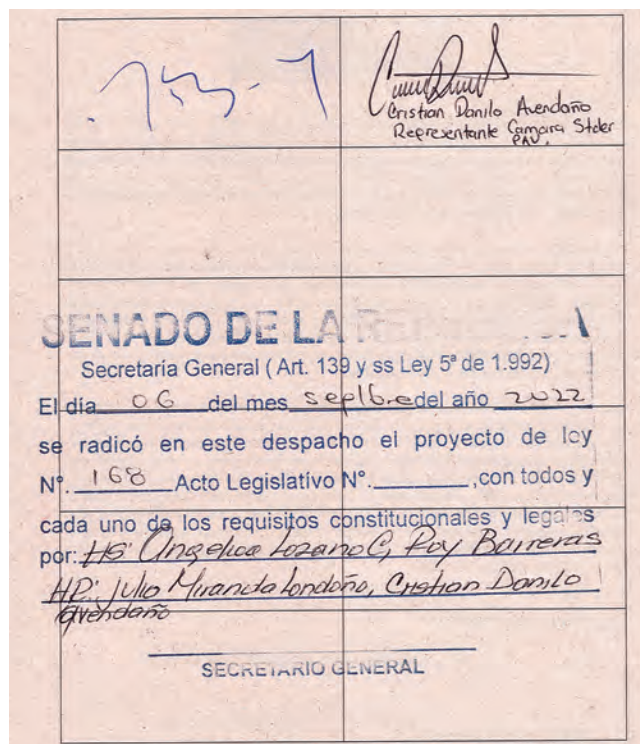 Cristian Danilo Avendaño
Representante Camara Stder
PAV.
SENADO DE LA REPUBLICA
Secretaría General ( Art. 139 y ss Ley 5ª de 1.992)
El día 06 del mes septbre del año 2022
se radicó en este despacho el proyecto de ley
N°. 168 Acto Legislativo N°. ,con todos y
cada uno de los requisitos constitucionales y legales
por: HS: Angelica Lozano C, Roy Barreras
HR: Julio Miranda Londoño, Cristian Danilo
Avendaño
SECRETARIO GENERAL